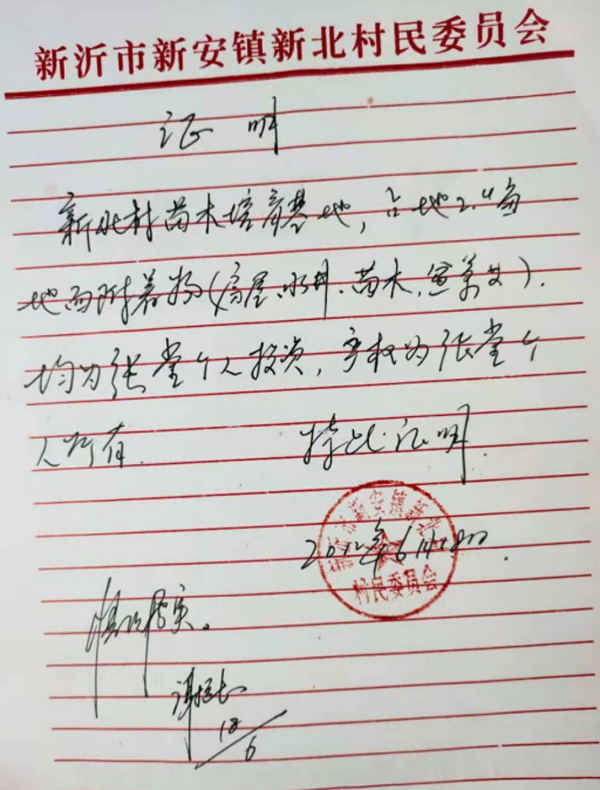 新沂市新安镇新北村民委员会
证明
新北村苗木培育基地，占地2.4亩
地面附着物(房屋、水井、苗木、
均为张堂个人投资，产权为张堂个
人所有. 特此证明.
新沂市新安镇新北
村民委员会
2012年6月18日.
情况属实。
18/6